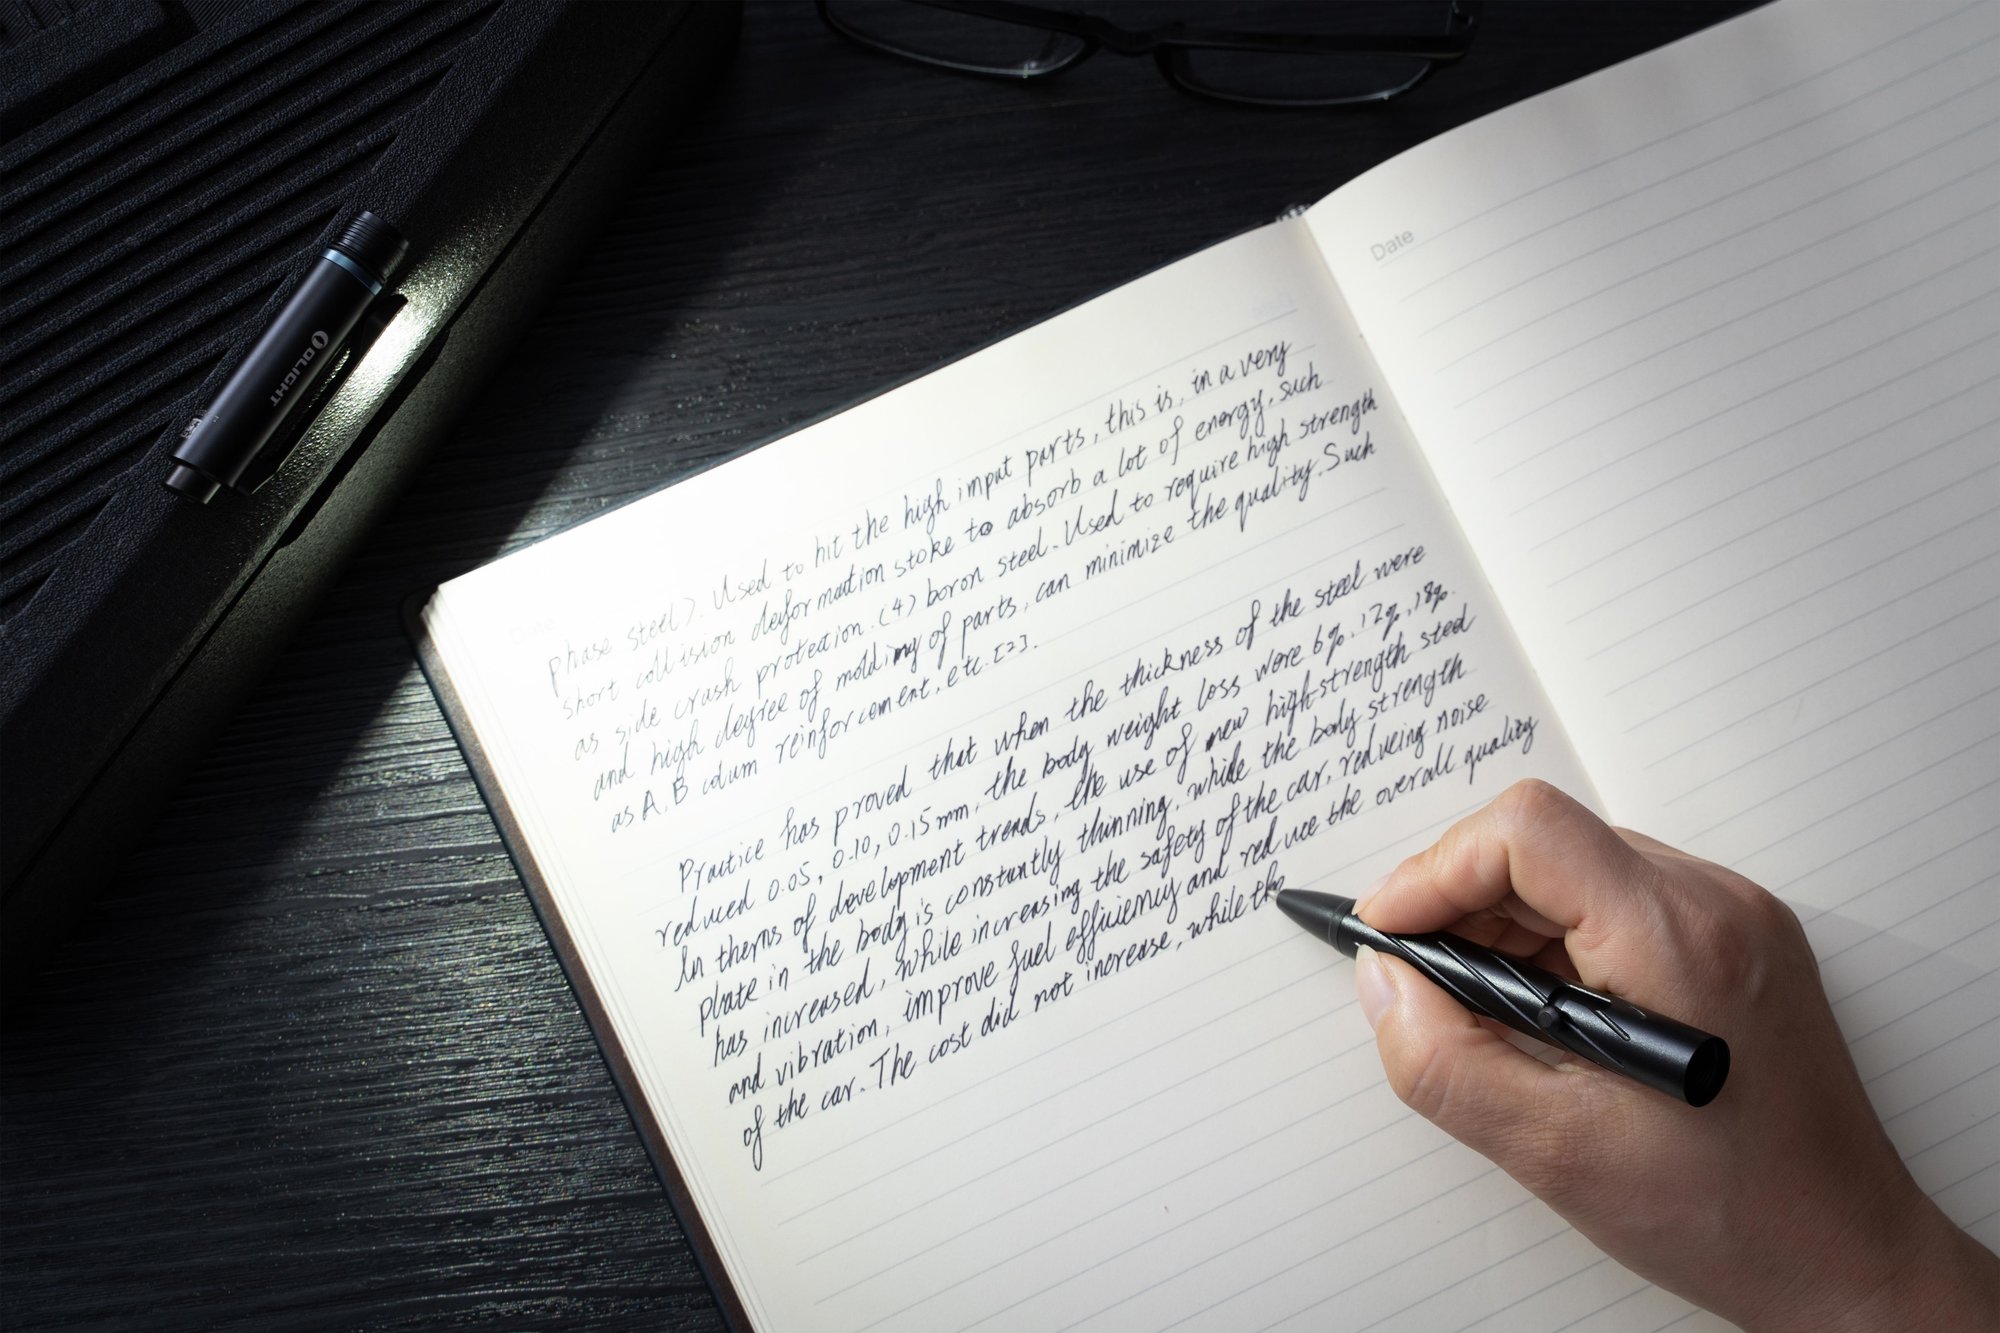 OLIGHT
Date
phase steel). Used to hit the high impat parts, this is, in a very
short collision deformation stoke to absorb a lot of energy, such
as side crash proteation. (4) boron steel. Used to require high strength
and high degree of molding of parts, can minimize the quality. Such
as A, B colum reinforcement, etc. [2].
Practice has proved that when the thickness of the steel were
reduced 0.05, 0.10, 0.15 mm, the body weight loss were 6%, 12%, 18%.
In therms of development trends, the use of new high-strength steel
plate in the body is constantly thinning, while the body strength
has increased, while increasing the safety of the car, reducing noise
and vibration, improve fuel efficiency and reduce the overall quality
of the car. The cost did not increase, while the